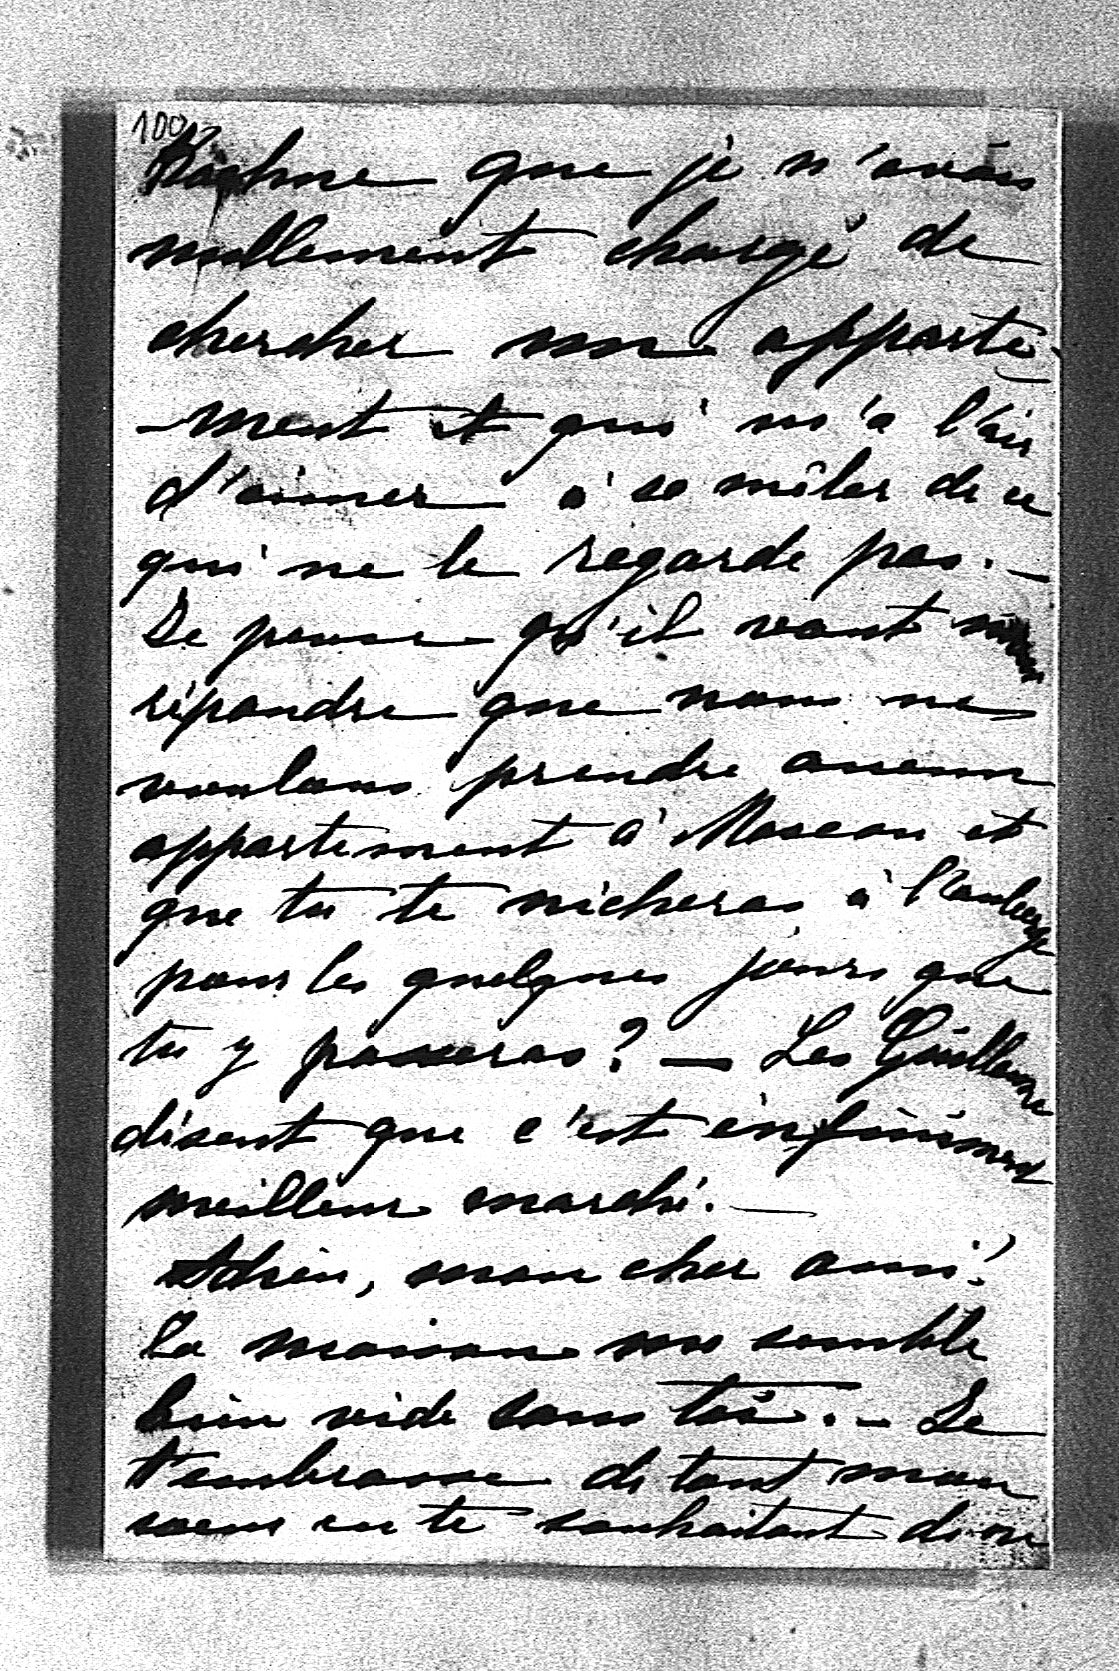 100
que je n'avais
nullement chargé de
chercher un apparte-
-ment et qui m'a l'air
d'aimer à se mêler de ce
qui ne le regarde pas. —
Je pense qu'il vaut mieux
répondre que nous ne
voulons prendre aucun
appartement à Moscou et
que tu te nicheras à l'auberge
pour les quelques jours que
tu y passeras? — Les Guillaume
disent que c'est infiniment
meilleur marché. —
Adieu, mon cher ami!
La maison me semble
bien vide sans toi. — Je
t'embrasse de tout mon
coeur en te souhaitant de ne